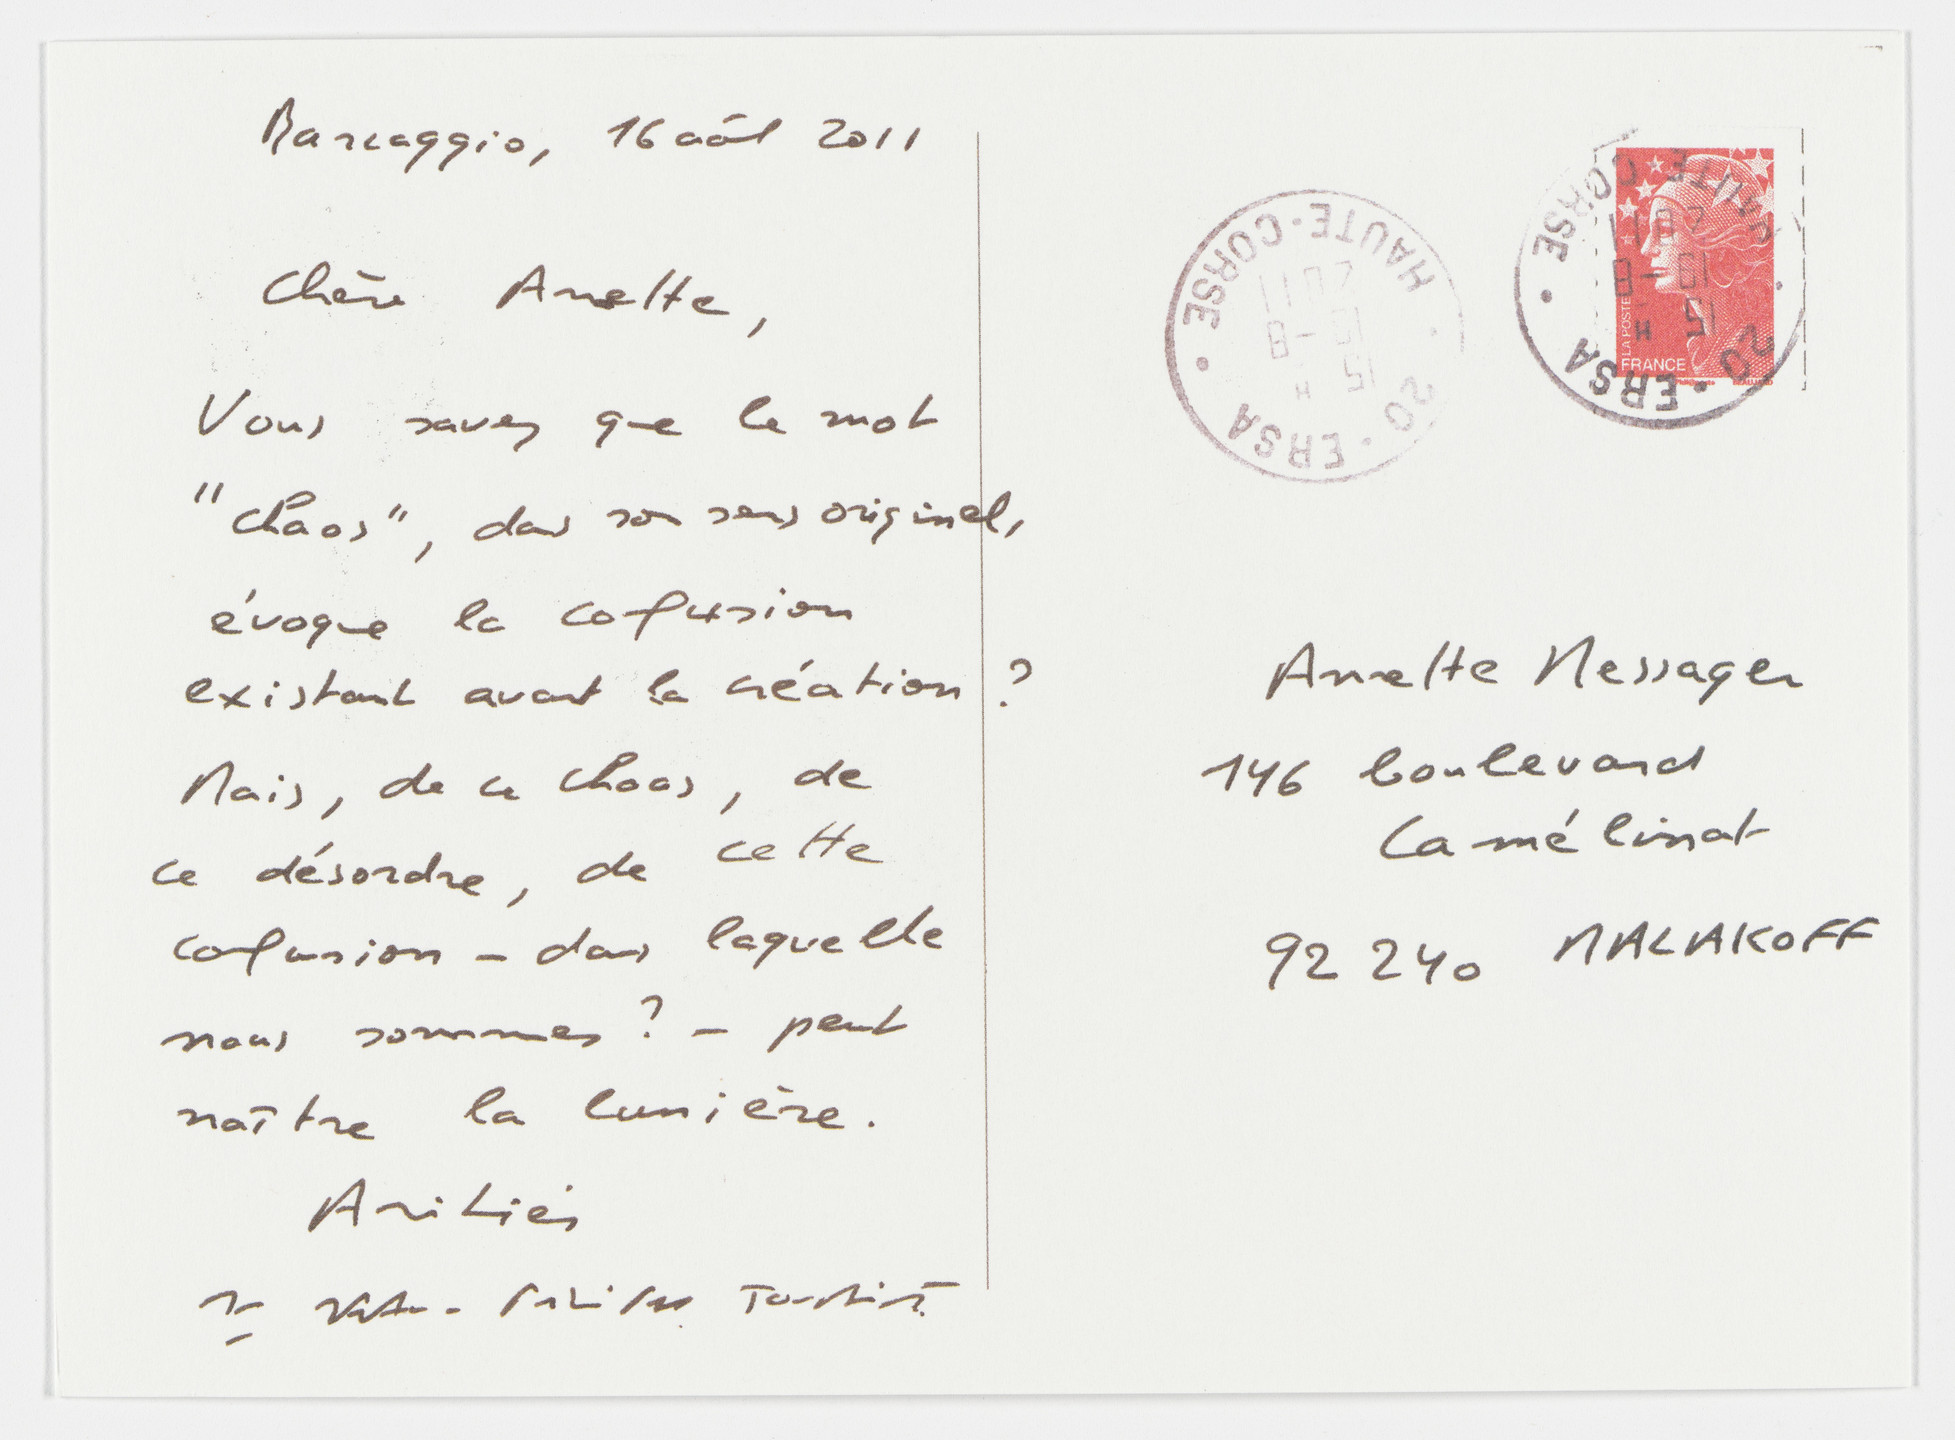 Barcaggio, 16 août 2011
Chère Annette,
Vous savez que le mot
"chaos", dans son sens originel,
évoque la confusion
existant avant la création ?
Mais, de ce chaos, de
ce désordre, de cette
confusion – dans laquelle
nous sommes ? – peut
naître la lumière.
Amitiés
HAUTE-CORSE
20 · ERSA
2011
19 -8
15 H
HAUTE CORSE
20 · ERSA
2011
19 -8
15 H
LA POSTE
FRANCE
Annette Messager
146 boulevard
Camélinat
92 240 MALAKOFF